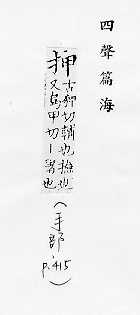 四聲篇海
押
古狎切輔也撿也
又烏甲切丨署也
(手部 p.415)